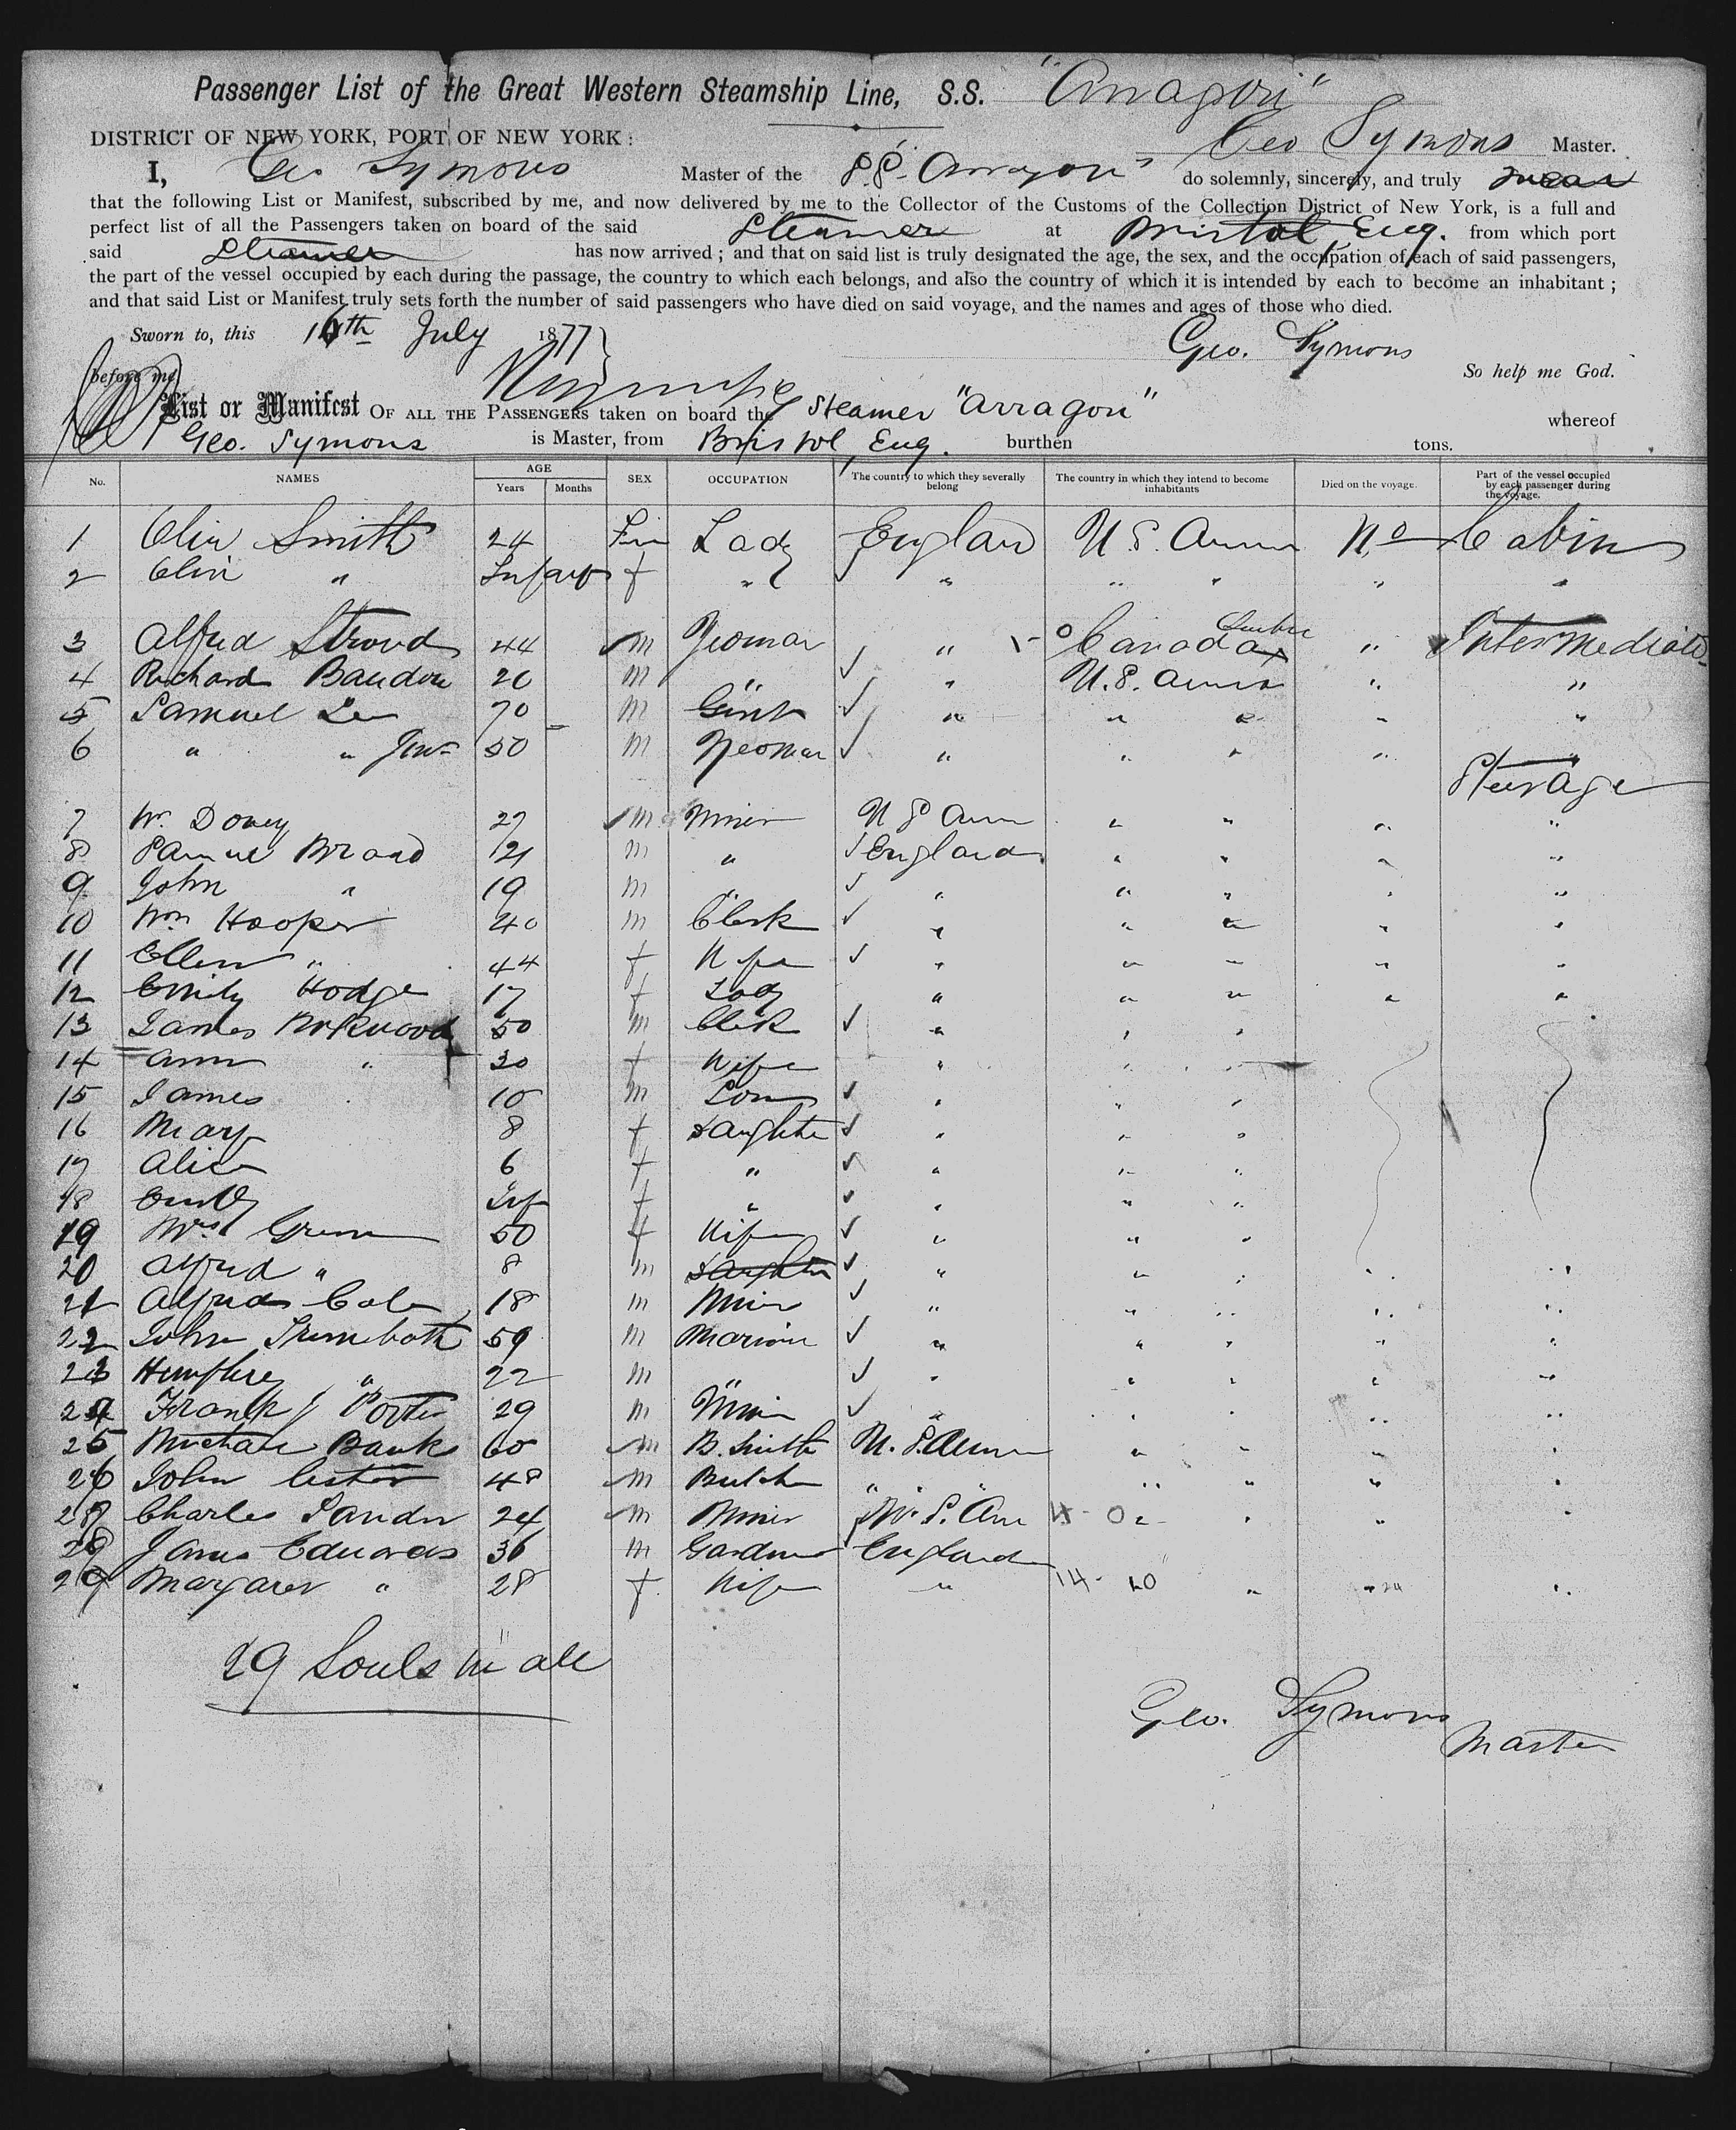 Passenger List of the Great Western Steamship Line, S.S. "Arragon"
DISTRICT OF NEW YORK, PORT OF NEW YORK: Geo Symons Master.
I, Geo Symons Master of the S.S. Arragon do solemnly, sincerely, and truly swear
that the following List or Manifest, subscribed by me, and now delivered by me to the Collector of the Customs of the Collection District of New York, is a full and
perfect list of all the Passengers taken on board of the said Steamer at Bristol, Eng. from which port
said Steamer has now arrived; and that on said list is truly designated the age, the sex, and the occupation of each of said passengers,
the part of the vessel occupied by each during the passage, the country to which each belongs, and also the country of which it is intended by each to become an inhabitant;
and that said List or Manifest truly sets forth the number of said passengers who have died on said voyage, and the names and ages of those who died.
Sworn to, this 16th July 1877 Geo. Symons
before me So help me God.
List or Manifest OF ALL THE PASSENGERS taken on board the Steamer "Arragon" whereof
Geo. Symons is Master, from Bristol, Eng. burthen tons.
No. NAMES AGE Years Months SEX OCCUPATION The country to which they severally belong The country in which they intend to become inhabitants Died on the voyage. Part of the vessel occupied by each passenger during the voyage.
1 Smith 24 Lady England U.S. No Cabin
2 " Infant f " " " " " "
3 Alfred Stroud 44 m Yeoman " Canada Quebec " Intermediate
4 Richard 20 m " " " "
5 Samuel 70 m Gent " " " " "
6 " " Junr 50 m Yeoman " " " " "
Steerage
7 Wm Dovey 27 m Miner U S " " " "
8 Samuel Broad 21 m " England " " " "
9 John " 19 m " " " " " "
10 Wm Hooper 40 m Clerk " " " " "
11 Ellen " 44 f Wife " " " " "
12 Emily Hodge 17 f Lady " " " " "
13 James 50 m Clerk " " "
14 Ann " 30 f Wife " " "
15 James 10 m Son " " "
16 Mary 8 f daughter " " "
17 Alice 6 f " " " "
18 Emily Inf f " " " "
19 Mrs Green 50 f Wife " " "
20 Alfred " 8 m daughter " " " " "
21 Alfred Cole 18 m Miner " " " " "
22 John Trembath 59 m Mariner " " " " "
23 Humphrey " 22 m " " " " " "
24 Frank Porter 29 m Miner " " " " "
25 Banks 60 m B. Smith U. S. " " " "
26 John 48 m Butcher " " " " " "
27 Charles 24 m Miner U. S. Am " " "
28 James Edwards 36 m Gardner England
29 Margaret " 28 f Wife " " " "
29 Souls in all
Geo. Symons
Master